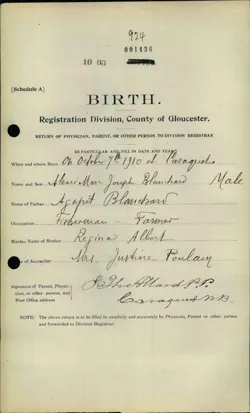 924
001436
10 03
[Schedule A]
BIRTH.
Registration Division, County of Gloucester.
RETURN OF PHYSICIAN, PARENT, OR OTHER PERSON TO DIVISION REGISTRAR
BE PARTICULAR AND FILL IN DATE AND YEAR
When and where Born On October 7th 1910 at Caraquet
Name and Sex Marie Joseph Blanchard Male
Name of Father Agapit Blanchard
Occupation Fisherman - Farmer
Maiden Name of Mother Regina Albert
of Accoucher Mrs. Justine Poulain
Signature of Parent, Physician, or other person, and Post Office address Allard P.P.
Caraquet N.B.
NOTE. The above return is to be filled in carefully and accurately by Physician, Parent or other person and forwarded to Division Registrar.